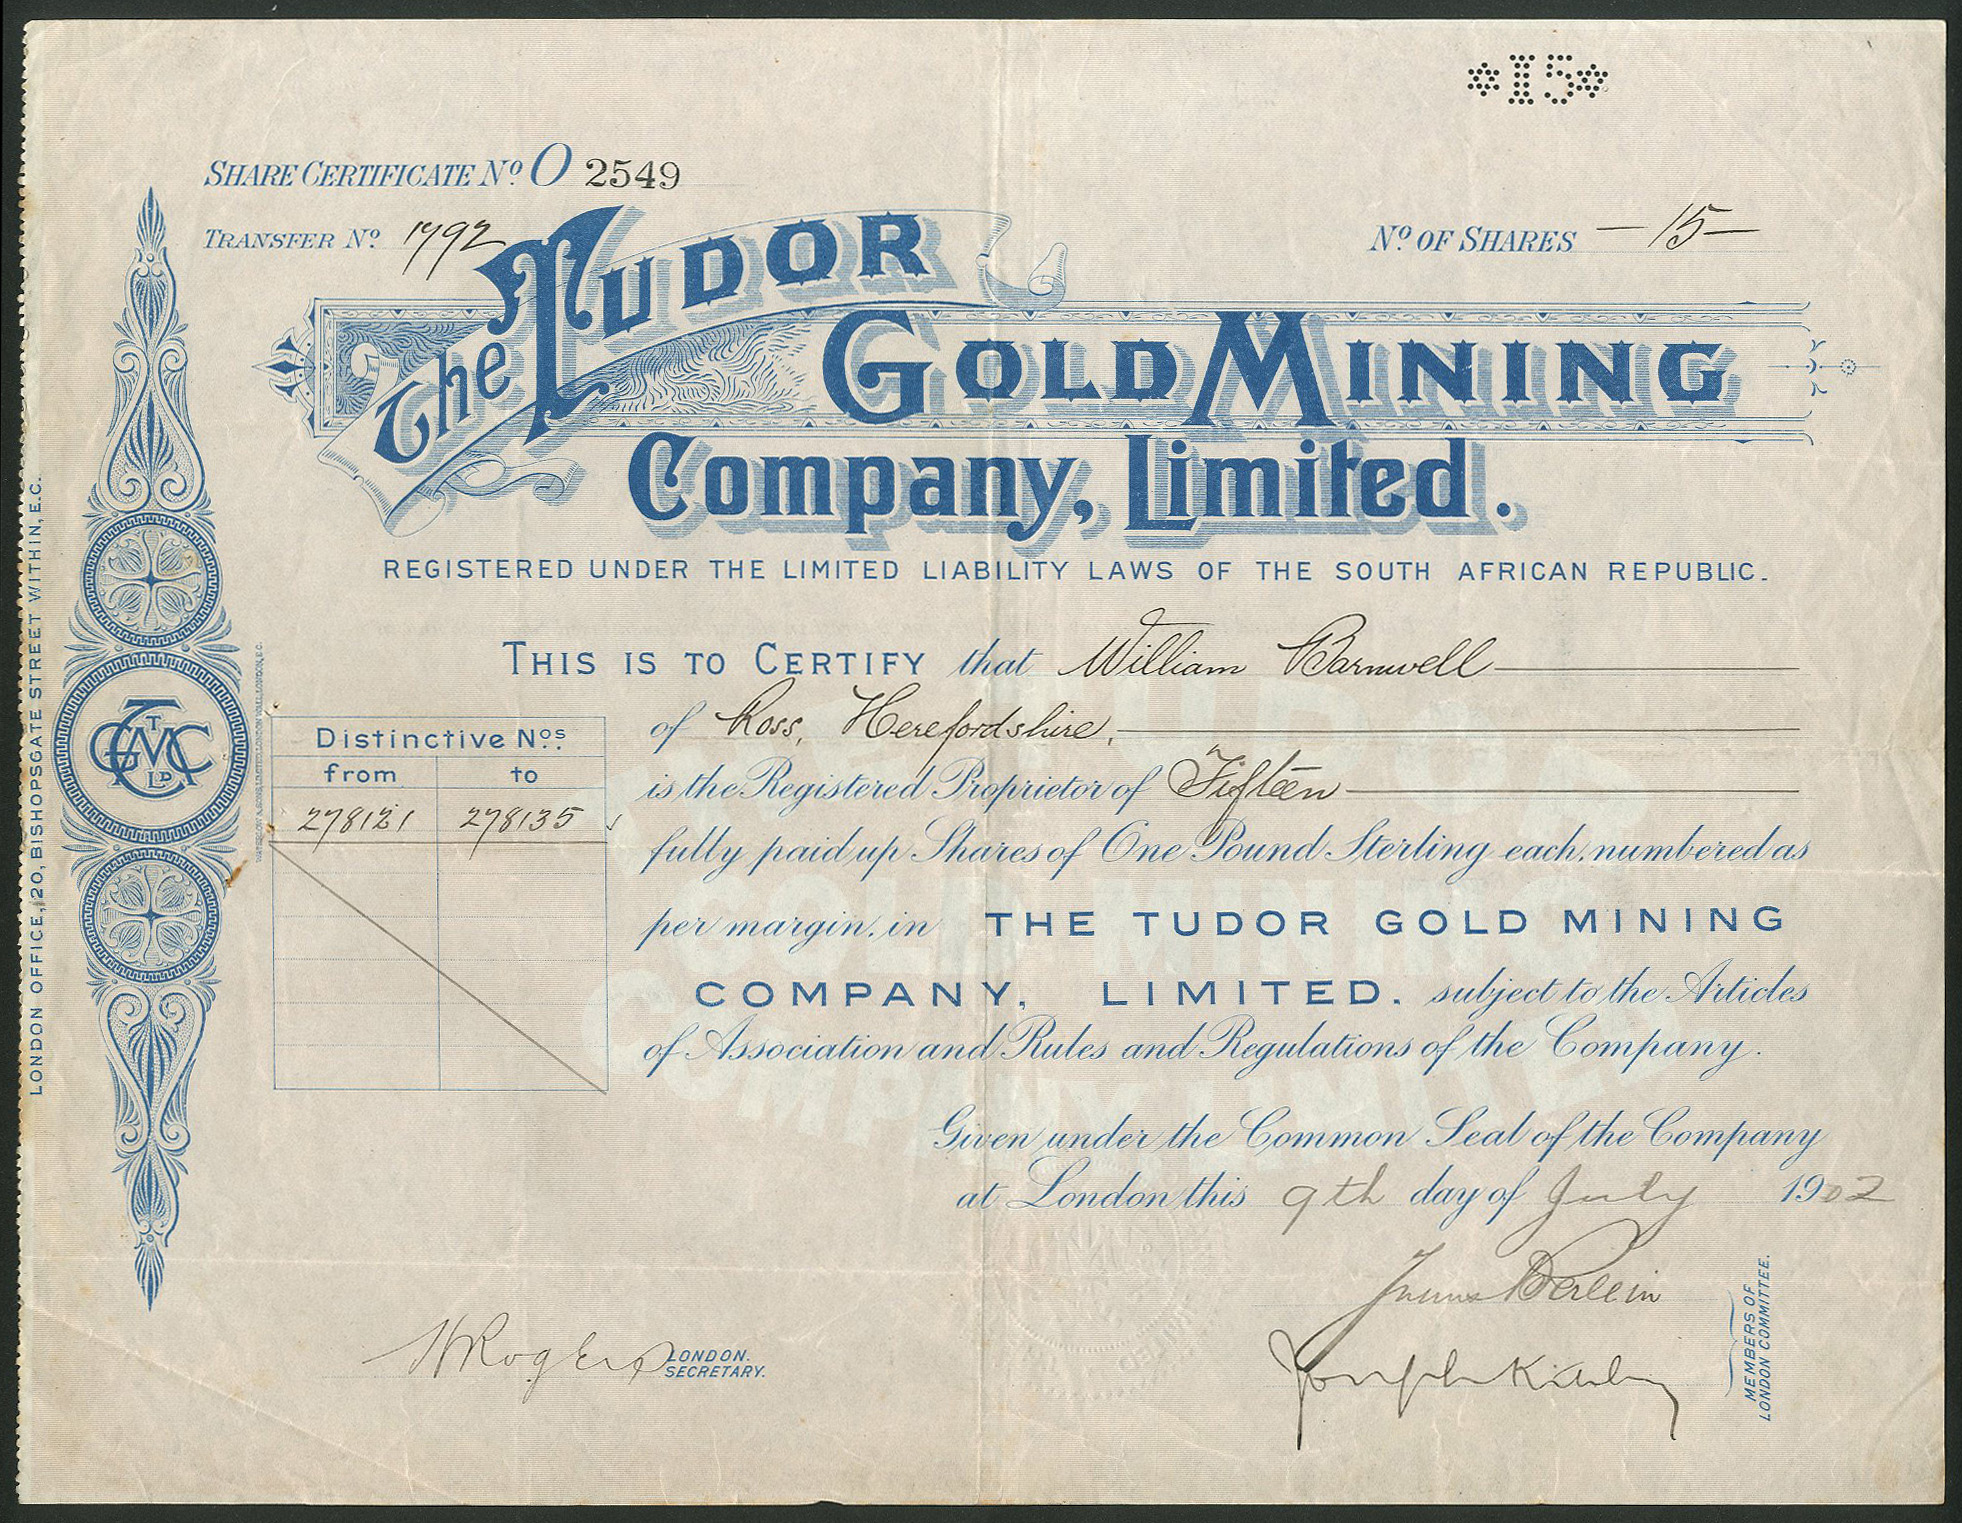 *15*
SHARE CERTIFICATE Nº O 2549
TRANSFER Nº 1792
Nº OF SHARES — 15 —
The TUDOR
GOLD MINING
Company, Limited.
REGISTERED UNDER THE LIMITED LIABILITY LAWS OF THE SOUTH AFRICAN REPUBLIC.
THIS IS TO CERTIFY that William Barnwell
of Ross, Herefordshire,
is the Registered Proprietor of Fifteen
fully paid up Shares of One Pound Sterling each, numbered as
per margin, in THE TUDOR GOLD MINING
COMPANY, LIMITED. subject to the Articles
of Association and Rules and Regulations of the Company.
Distinctive Nos.
from to
278121 278135
Given under the Common Seal of the Company
at London this 9th day of July 1902
Joseph
H Rogers LONDON.
SECRETARY.
MEMBERS OF
LONDON COMMITTEE.
LONDON OFFICE, 20, BISHOPSGATE STREET WITHIN, E.C.
TGMC LD
THE TUDOR
GOLD MINING
COMPANY LIMITED